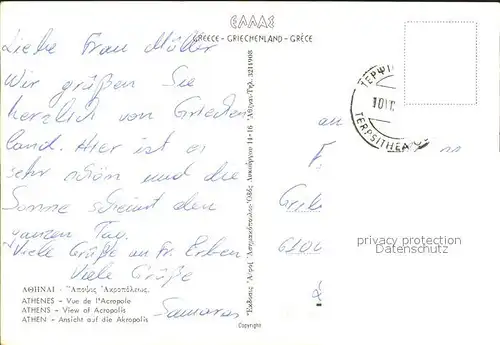 ΕΛΛΑΣ
GREECE - GRIECHENLAND - GRÈCE
Liebe Frau Müller
Wir grüßen Sie
herzlich von Griechen
land. Hier ist es
sehr schön und die
Sonne scheint den
ganzen Tag.
Viele Grüße an Fr. Erben
Viele Grüße
Samaras
ΑΘΗΝΑΙ - Ἄποψις Ἀκροπόλεως.
ATHENES - Vue de l'Acropole
ATHENS - View of Acropolis
ATHEN - Ansicht auf die Akropolis
Copyright
Λυκούργου 14-16 Ἀθῆναι-Τηλ. 3211908
ΤΕΡΨΙ
TERPSITHEA
an
F
Grie
6100
privacy protection
Datenschutz